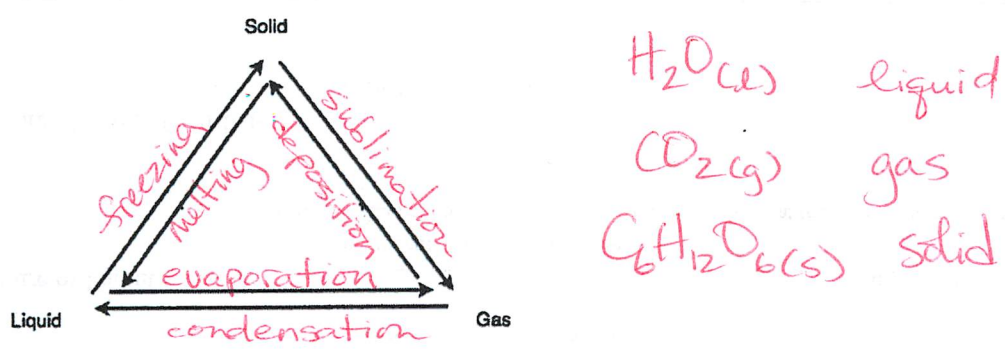 Solid
freezing
melting
deposition
sublimation
evaporation
Liquid
condensation
Gas
H₂O(l) liquid
CO₂(g) gas
C₆H₁₂O₆(s) solid